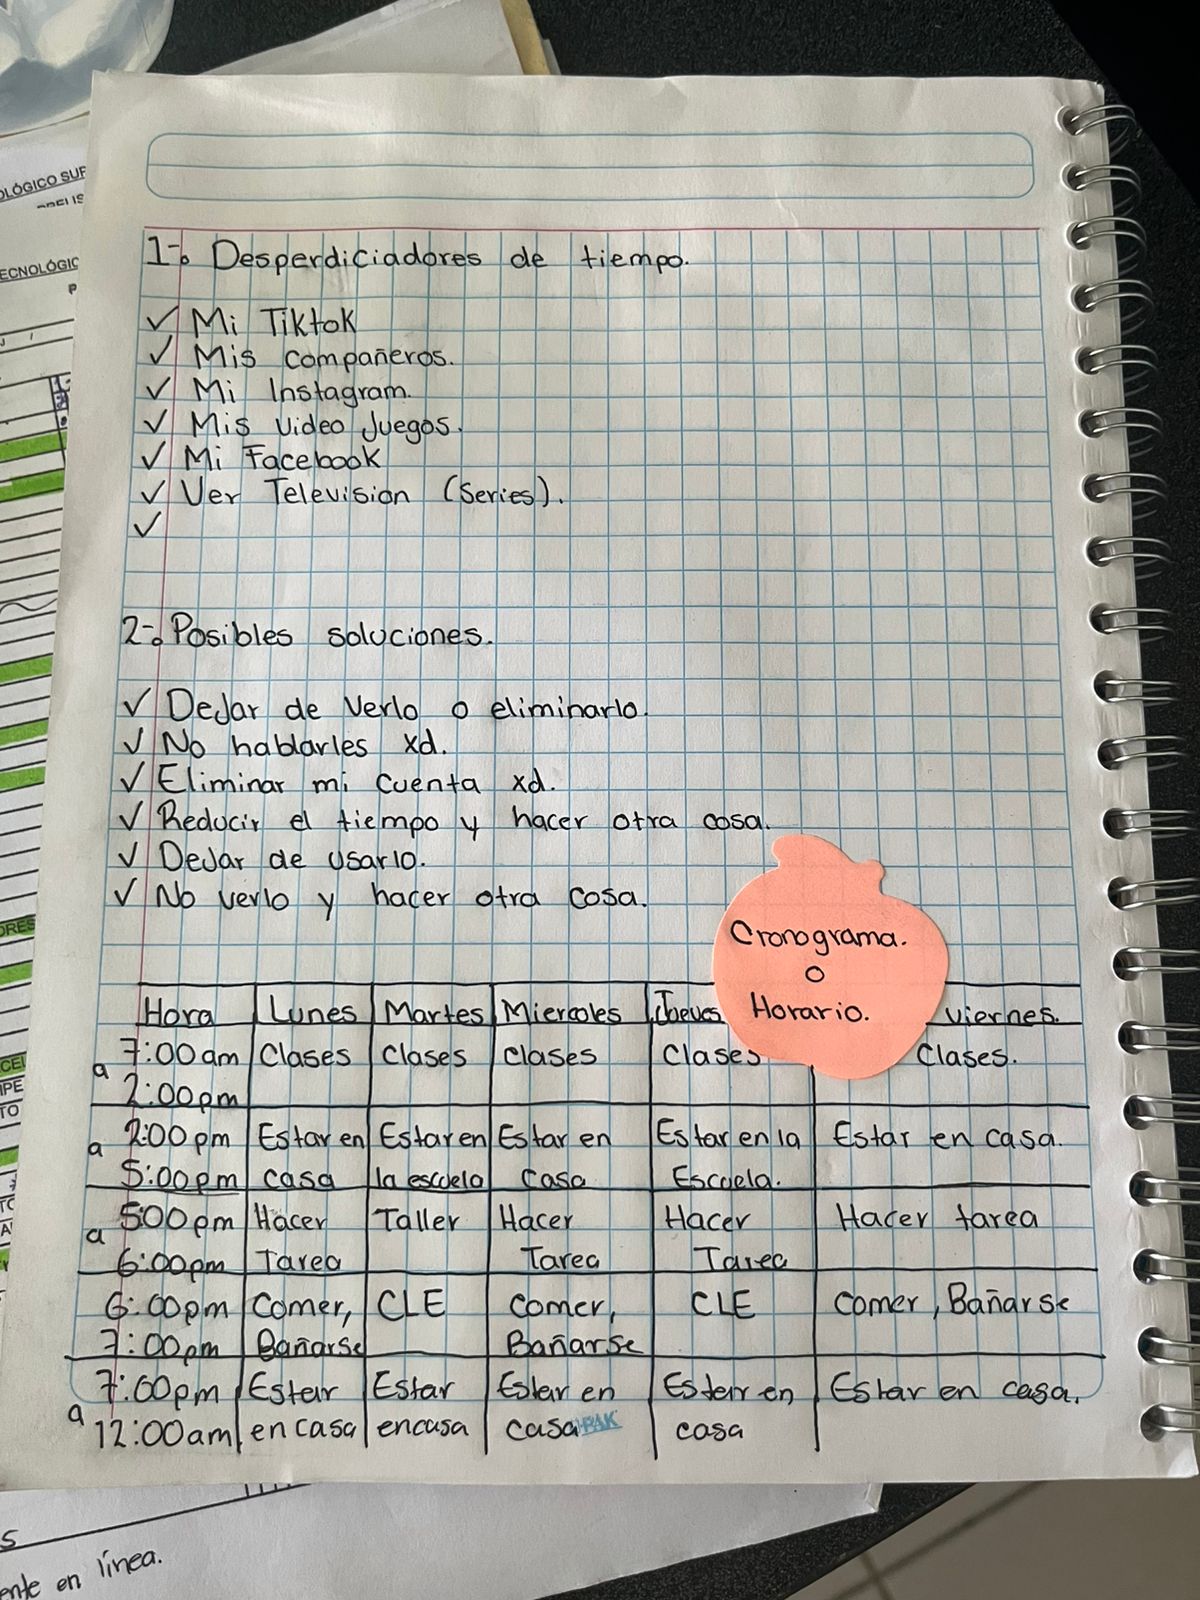 OLÓGICO SUP
ECNOLÓGIC
P
1-. Desperdiciadores de tiempo.
✓ Mi Tiktok
✓ Mis compañeros.
✓ Mi Instagram.
✓ Mis Video Juegos.
✓ Mi Facebook
✓ Ver Television (Series).
✓
2-. Posibles soluciones.
✓ Dejar de Verlo o eliminarlo.
✓ No hablarles xd.
✓ Eliminar mi cuenta xd.
✓ Reducir el tiempo y hacer otra cosa.
✓ Dejar de usarlo.
✓ No verlo y hacer otra cosa.
Cronograma.
o
Horario.
Hora Lunes Martes Miercoles Jueves viernes.
7:00am Clases Clases Clases Clases Clases.
a
2:00pm
2:00pm Estar en Estar en Estar en Estar en la Estar en casa.
a
5:00pm casa la escuela Casa Escuela.
5:00pm Hacer Taller Hacer Hacer Hacer tarea
a
6:00pm Tarea Tarea Tarea
6:00pm Comer, CLE Comer, CLE Comer, Bañarse
7:00pm Bañarse Bañarse
7:00pm Estar Estar Estar en Estar en Estar en casa.
a
12:00am en casa en casa casa casa
ente en línea.